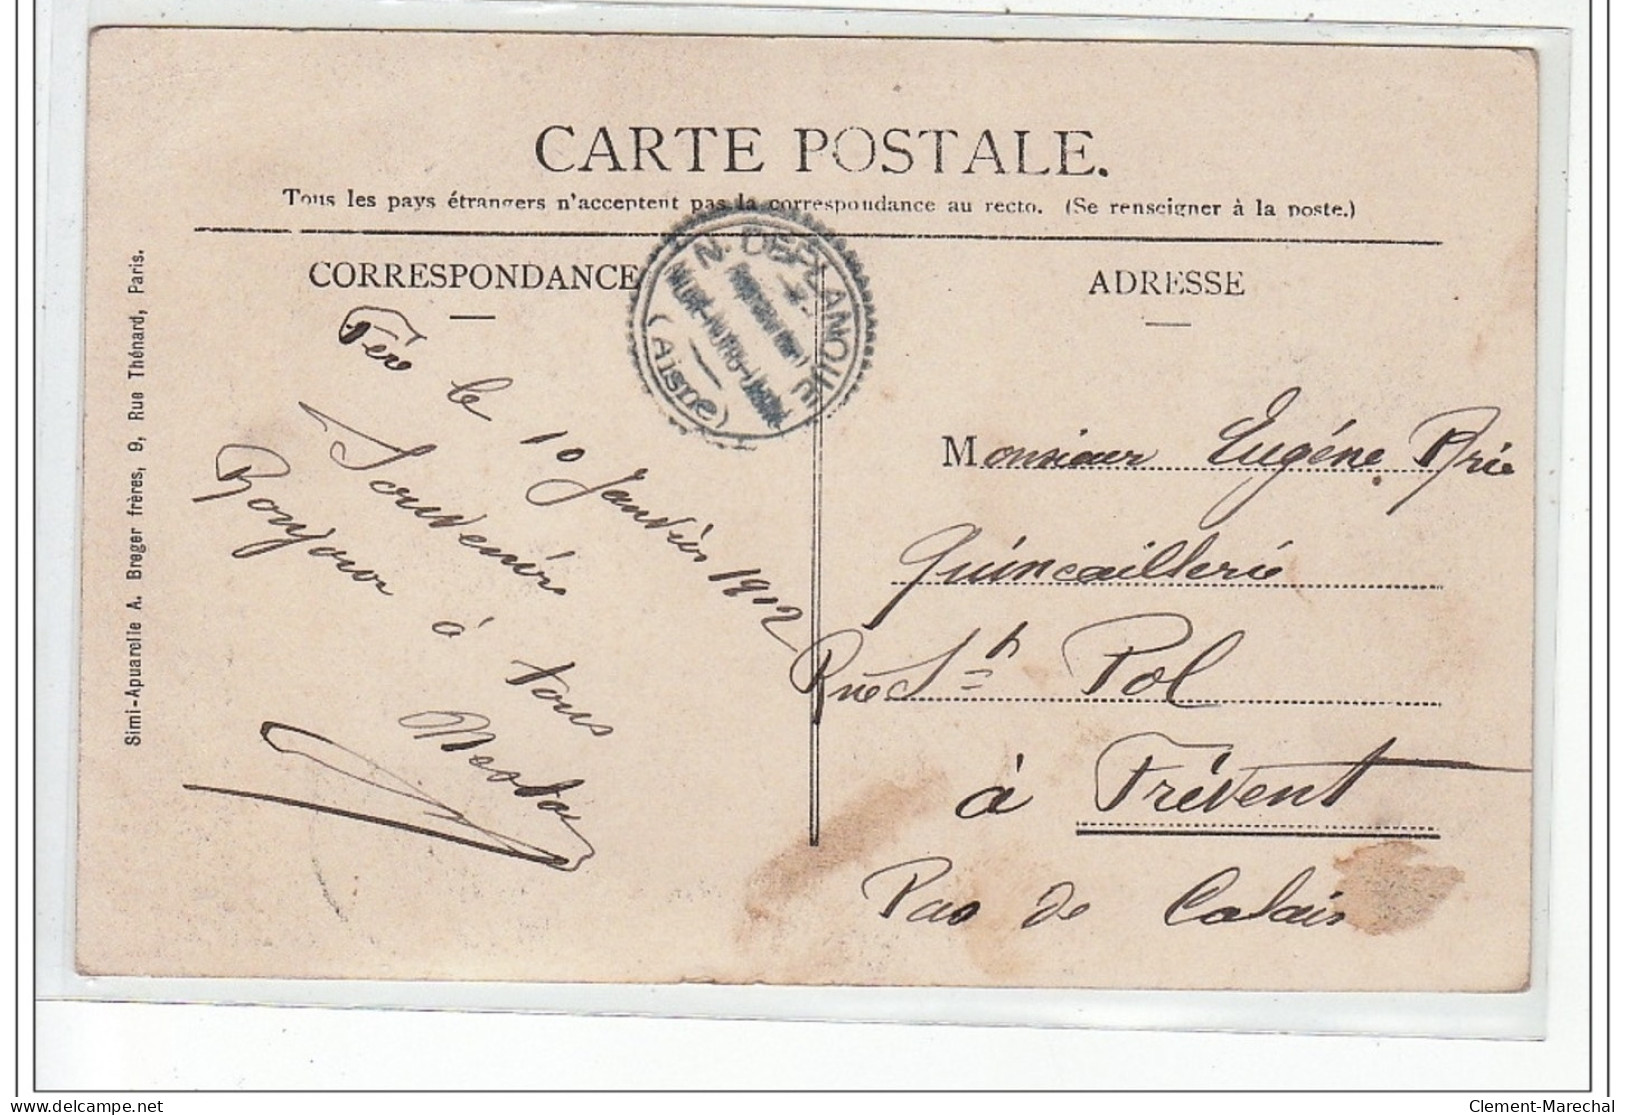 CARTE POSTALE.
Tous les pays étrangers n'acceptent pas la correspondance au recto. (Se renseigner à la poste.)
CORRESPONDANCE
ADRESSE
Simi-Aquarelle A. Breger frères, 9, Rue Thénard, Paris.
N. DEPLANQUE
(Aisne)
Fère le 10 Janvier 1912
Souvenir
Bonjour à tous
Monsieur Eugène Brie
Quincaillerie
Rue St Pol
à Frévent
Pas de Calais
Clement-Marechal
delcampe.net